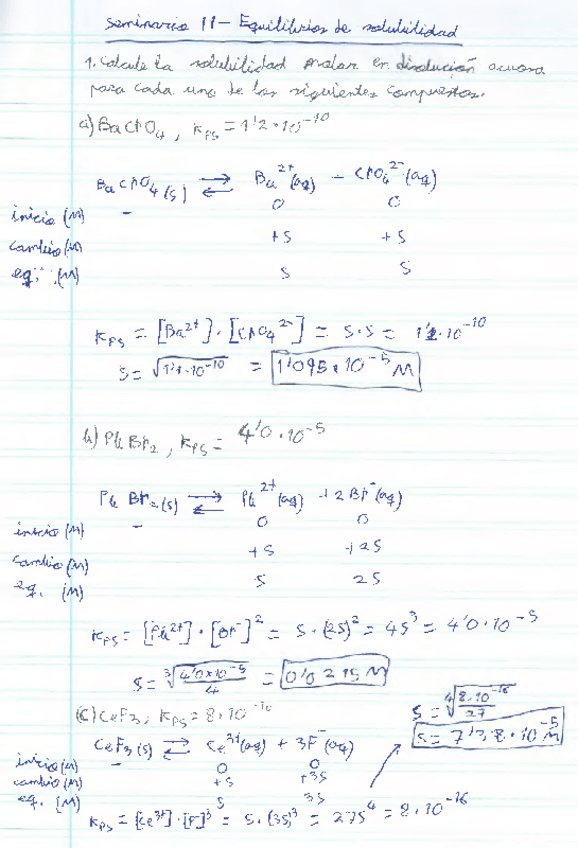 Seminario 11 - Equilibrios de solubilidad
1. Calcule la solubilidad molar en disolución acuosa
para cada uno de los siguientes compuestos.
a) BaCrO₄, Kps = 1'2·10⁻¹⁰
BaCrO₄(s) ⇄ Ba²⁺(aq) - CrO₄²⁻(aq)
inicio (M) - 0 0
cambio (M) +s +s
eq. (M) s s
Kps = [Ba²⁺]·[CrO₄²⁻] = s·s = 1'2·10⁻¹⁰
s = √1'2·10⁻¹⁰ = 1'095·10⁻⁵ M
b) PbBr₂, Kps = 4'0·10⁻⁵
PbBr₂(s) ⇄ Pb²⁺(aq) + 2Br⁻(aq)
inicio (M) - 0 0
cambio (M) +s +2s
eq. (M) s 2s
Kps = [Pb²⁺]·[Br⁻]² = s·(2s)² = 4s³ = 4'0·10⁻⁵
s = ∛(4'0×10⁻⁵/4) = 0'0215 M
(c) CeF₃, Kps = 8·10⁻¹⁶
CeF₃(s) ⇄ Ce³⁺(aq) + 3F⁻(aq)
inicio (M) - 0 0
cambio (M) +s +3s
eq. (M) s 3s
Kps = [Ce³⁺]·[F⁻]³ = s·(3s)³ = 27s⁴ = 8·10⁻¹⁶
s = ∜(8·10⁻¹⁶/27)
s = 7'38·10⁻⁵ M